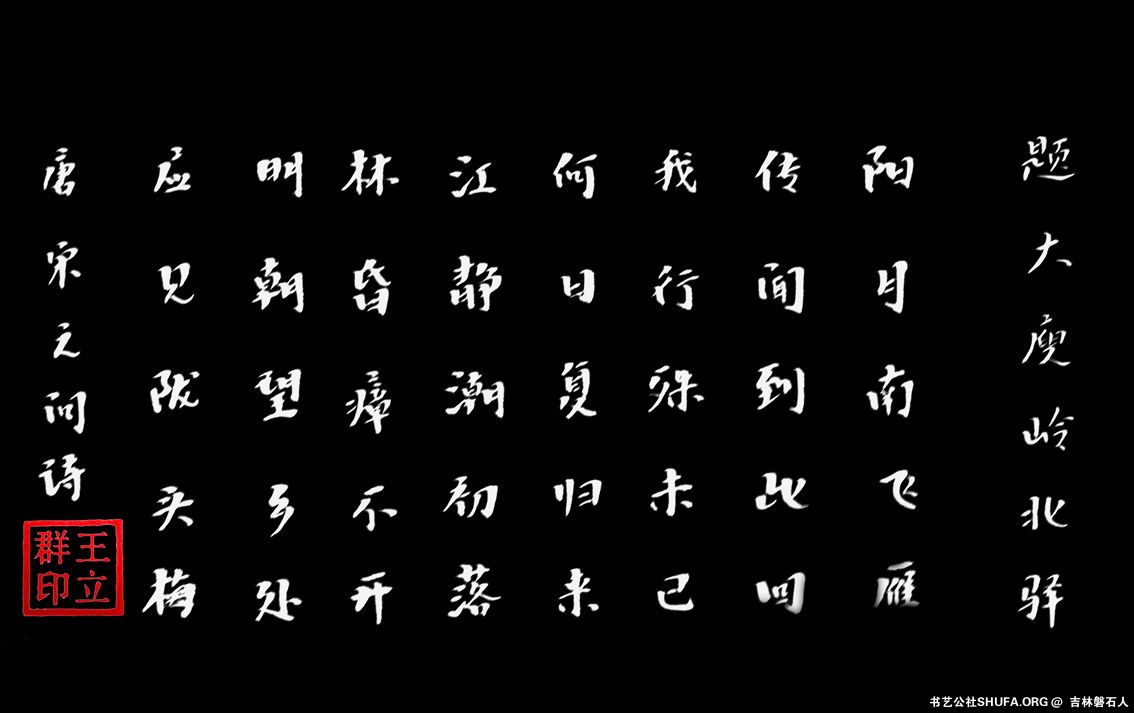 题大庾岭北驿
阳月南飞雁
传闻到此回
我行殊未已
何日复归来
江静潮初落
林昏瘴不开
明朝望乡处
应见陇头梅
唐宋之问诗
王立群印
书艺公社SHUFA.ORG @ 吉林磐石人